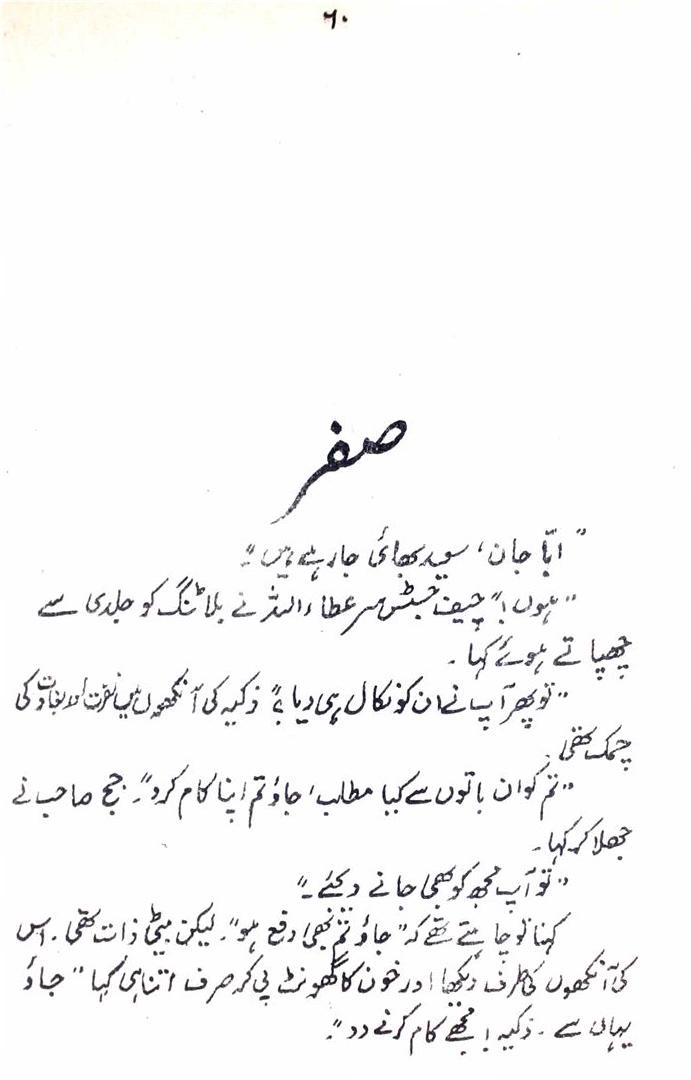 ۶۰
صفر
"ابّا جان، سعید بھائی جا رہے ہیں"۔
"ہوں!" چیف جسٹس سر عطاء اللہ نے بلاٹنگ کو جلدی سے
چھپاتے ہوئے کہا۔
"تو پھر آپ نے ان کو نکال ہی دیا؟" ذکیہ کی آنکھوں میں نفرت اور بغاوت کی
چمک تھی۔
"تم کو ان باتوں سے کیا مطلب، جاؤ تم اپنا کام کرو"۔ جج صاحب نے
جھلا کر کہا۔
"تو آپ مجھ کو بھی جانے دیجئے۔"
کہنا تو چاہتے تھے کہ "جاؤ تم بھی دفع ہو"۔ لیکن بیٹی ذات تھی۔ اس
کی آنکھوں کی طرف دیکھا اور خون کا گھونٹ پی کر صرف اتنا ہی کہا "جاؤ
یہاں سے۔ ذکیہ! مجھے کام کرنے دو"۔